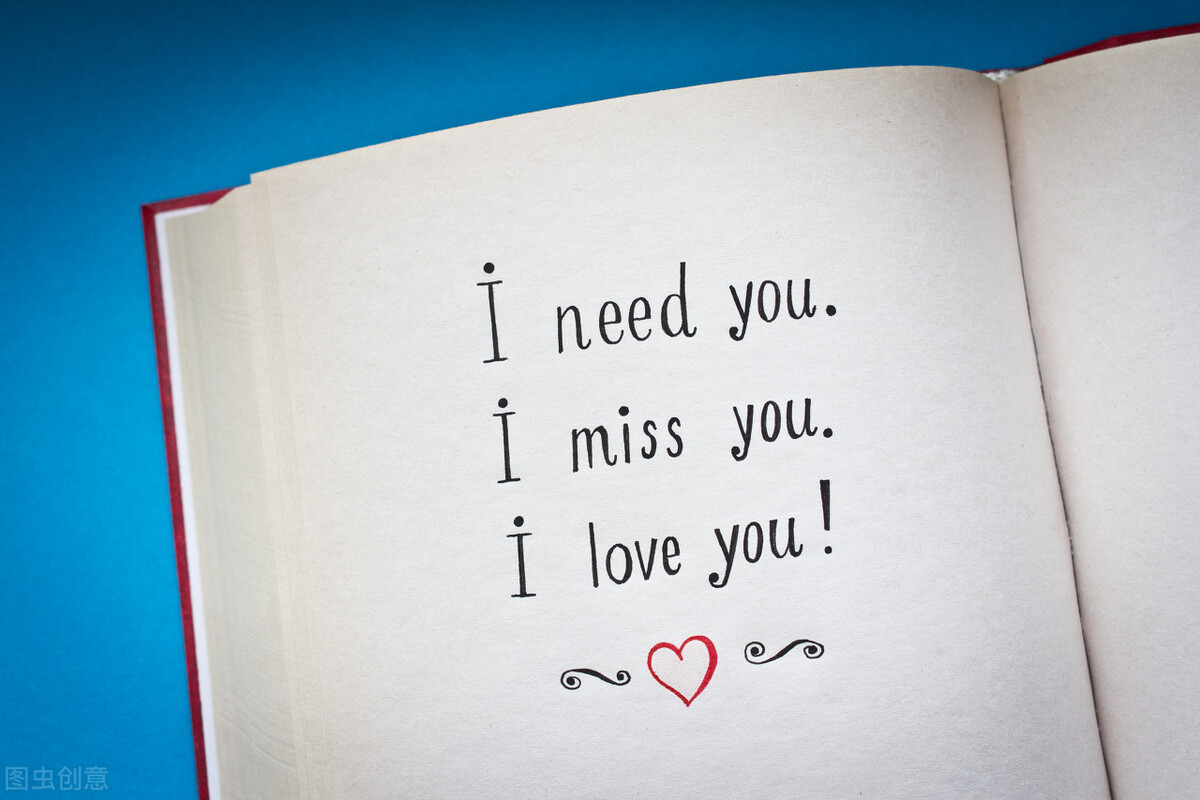 i need you.
i miss you.
i love you!
图虫创意